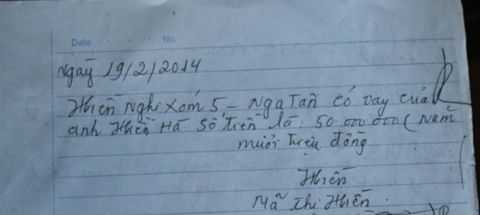 Date No.
Ngày 19/2/2014
Hiền Nghi Xóm 5 - Nga Tân có vay của
anh Hiền Hà Số tiền là: 50.000.000 ( Năm
mươi triệu đồng
Hiền
Mã Thị Hiền